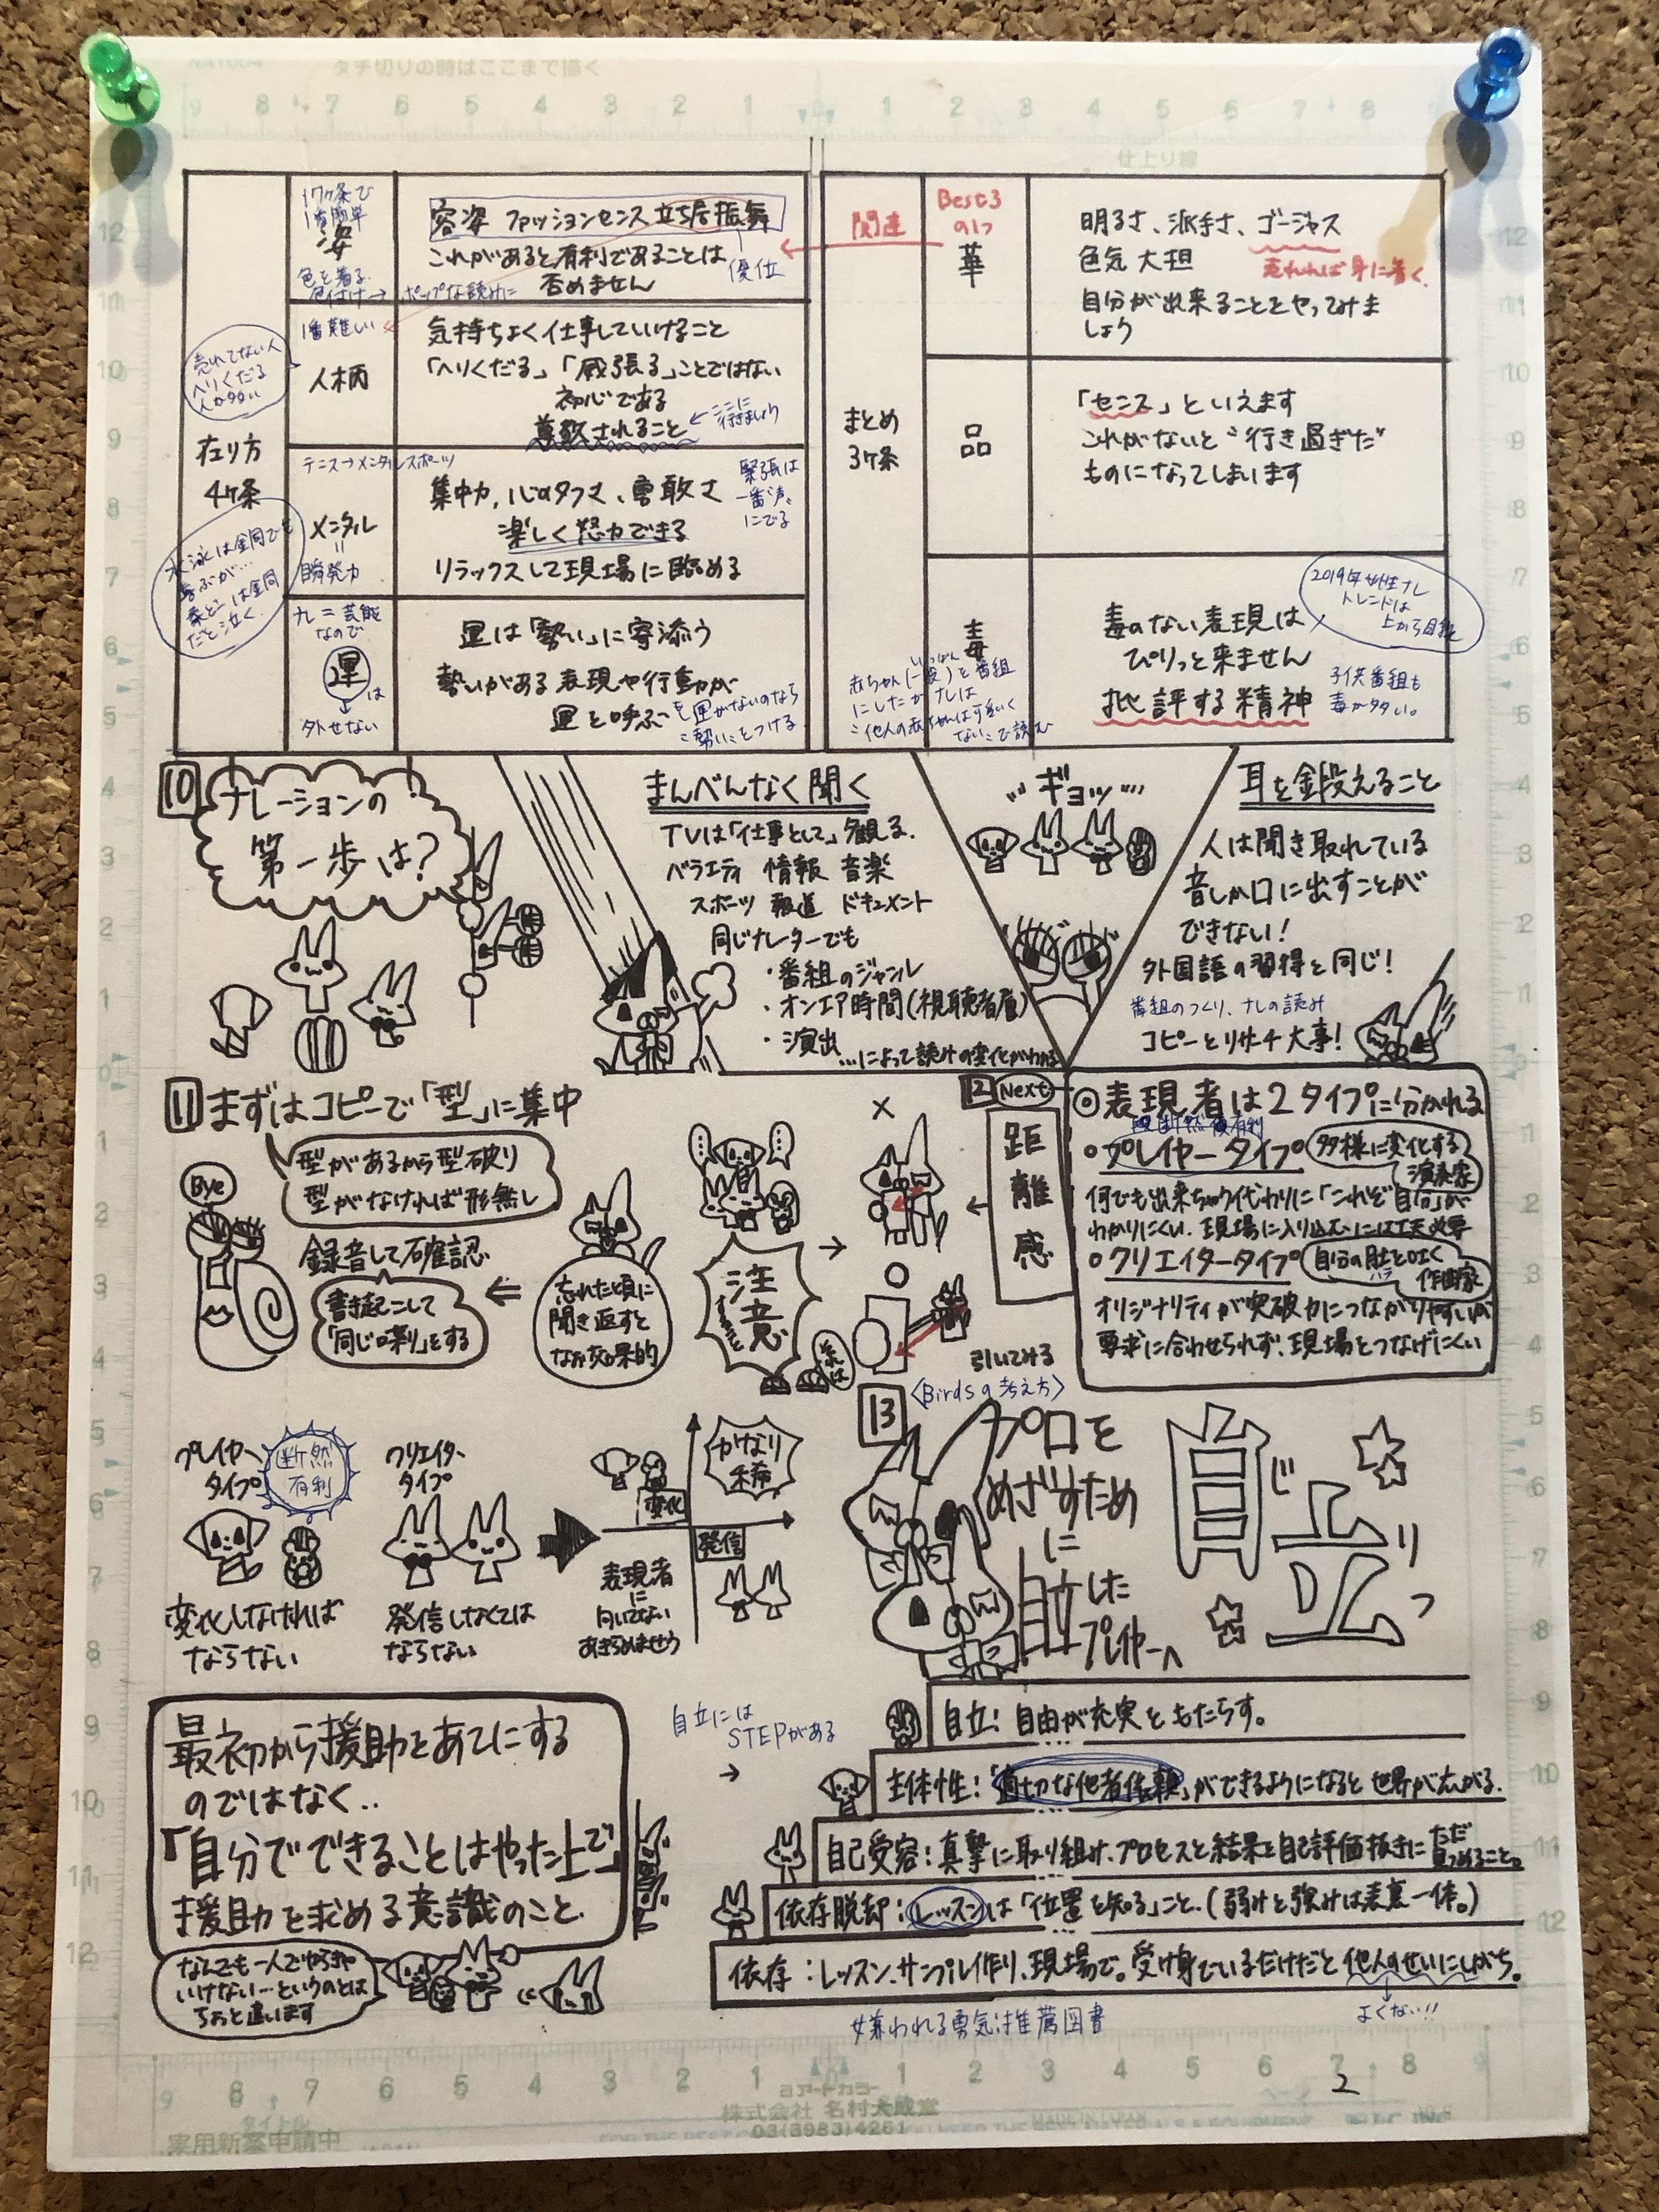 タチ切りの時はここまで描く
9 8 7 6 5 4 3 2 1 0 1 2 3 4 5 6 7 8
仕上り線
在り方
4ヶ条
売れてない人
へりくだる
人が多い
水泳は金同でも
喜ぶが…
柔とーは金同
だと泣く。
17ヶ条で
1番簡単
姿
色を着る
色付け→ ポップな読みに
容姿 ファッションセンス 立ち居振舞
これがあると有利であることは
否めません
優位
1番難しい
人柄
気持ちよく仕事していけること
「へりくだる」「威張る」ことではない
初心である
尊敬されること
←ここに
行きましょう
テニス→メンタルスポーツ
メンタル
〃
瞬発力
集中力、心のタフさ、勇敢さ
楽しく努力できる
リラックスして現場に臨める
緊張は
一番"声"
にでる
ナレ=芸能
なので
運は
↓
外せない
運は「勢い」に寄添う
勢いがある表現や行動が
運を呼ぶ
運がないのなら
"勢い"をつける
まとめ
3ヶ条
関連
Best3
の1つ
華
明るさ、派手さ、ゴージャス
売れれば身に着く
色気 大胆
自分が出来ることをやってみま
しょう
品
「センス」といえます
これがないと"行き過ぎた"
ものになってしまいます
毒
毒のない表現は
ぴりっと来ません
批評する精神
2019年女性ナレ
トレンドは
上から目線
子供番組も
毒が多い。
赤ちゃん(一般)を番組
いっぱん
にしたがナレは
"他人の赤ちゃんは可愛く
ない"で読む
10
ナレーションの
第一歩は?
まんべんなく聞く
TVは「仕事として」観る。
バラエティ 情報 音楽
スポーツ 報道 ドキュメント
同じナレーターでも
・番組のジャンル
・オンエア時間(視聴者層)
・演出
…によって読みの変化がわかる
ギョッ
耳を鍛えること
人は聞き取れている
音しか口に出すことが
できない!
外国語の習得と同じ!
番組のつくり、ナレの読み
コピーとリサーチ大事!
11 まずはコピーで「型」に集中
型があるから型破り
型がなければ形無し
Bye
録音して確認
書き起こして
「同じ喋り」をする
忘れた頃に
聞き返すと
なお効果的
注意
それは
12 Next
距離感
×
引いてみる
◎表現者は2タイプに分かれる
断然有利
○プレイヤータイプ
多様に変化する
演奏家
何でも出来ちゃう代わりに「これぞ自分」が
わかりにくい。現場に入り込むには工夫必要
○クリエイタータイプ
自分の肚を吐く
ハラ
作曲家
オリジナリティが突破力につながりやすいが
要求に合わせられず、現場とつなげにくい
プレイヤー
タイプ
断然
有利
変化しなければ
ならない
クリエイター
タイプ
発信しなくては
ならない
変化
かなり
稀
発信
表現者
に
向いてない
あきらめませう
13
〈Birdsの考え方〉
プロを
めざすため
に
自立した
プレイヤーへ
自立
じりつ
最初から援助をあてにする
のではなく..
「自分でできることはやった上で」
援助を求める意識のこと。
なんでも一人でやらなきゃ
いけない…というのとは
ちょと違います
自立には
STEPがある
→
自立:自由が充実をもたらす。
主体性:「適切な他者依頼」ができるようになると世界が広がる。
自己受容:真摯に取り組み、プロセスと結果を自己評価抜きにただ
見つめること。
依存脱却:レッスンは「位置を知る」こと。(弱みと強みは表裏一体。)
依存:レッスン、サンプル作り、現場で。受け身でいるだけだと他人のせいにしがち。
よくない!!
嫌われる勇気は推薦図書
9 8 7 6 5 4 3 2 1 1 2 3 4 5 6 7 8
2
ヨアートカラー
株式会社 名村大成堂
03(3983)4261
タイトル
実用新案申請中